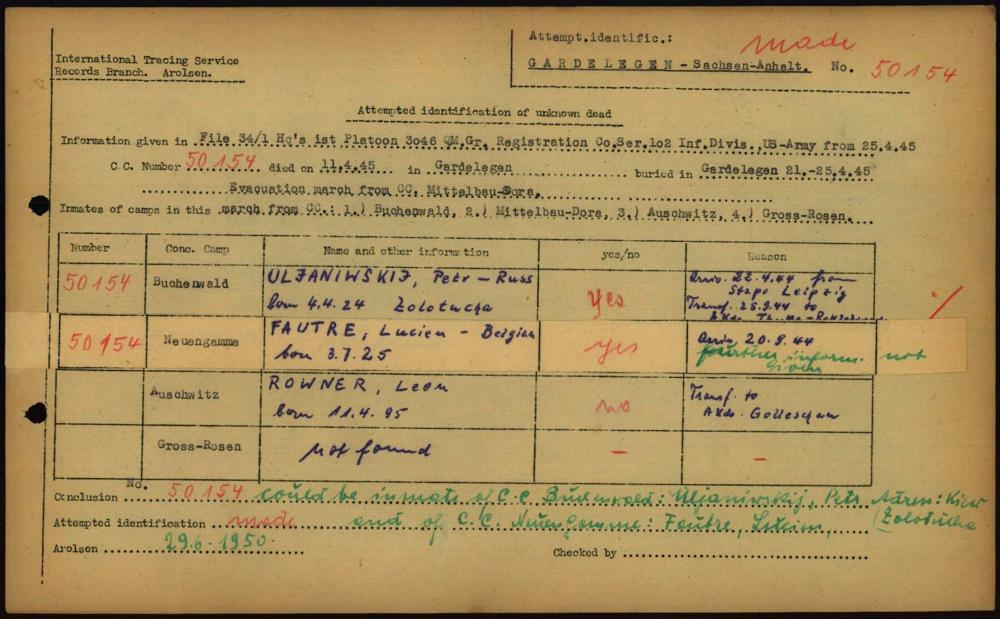 International Tracing Service
Records Branch. Arolsen.
Attempt.identific.: made
GARDELEGEN - Sachsen-Anhalt. No. 50154
Attempted identification of unknown dead
Information given in File 34/1 Hq's ist Platoon 3046 QM.Gr. Registration Co.Ser.102 Inf.Divis.,US-Army from 25.4.45
C.C. Number 50154 died on 11.4.45 in Gardelegen buried in Gardelegen 21.-25.4.45
Evacuation march from CC. Mittelbau-Dora.
Inmates of camps in this march from CC.: 1.) Buchenwald, 2.) Mittelbau-Dora, 3.) Auschwitz, 4.) Gross-Rosen.
Number Conc. Camp Name and other information yes/no Reason
50154 Buchenwald ULJANIWSKIJ, Petr - Russ yes Arriv. 22.4.44 from
born 4.4.24 Zolotucha Stapo Leipzig
Transf. 25.9.44 to
50154 Neuengamme FAUTRE, Lucien - Belgian yes Arriv. 20.9.44
born 3.7.25 further inform. not
given
Auschwitz ROWNER, Leon no Transf. to
born 11.4.95 AKdo. Golleschau
Gross-Rosen not found - -
Conclusion No. 50154 could be inmate of C.C. Buchenwald: Uljaniwskij, Petr Adress: Kiew
Zolotucha
Attempted identification made and of C.C. Neuengamme: Fautre,
Arolsen 29.6.1950. Checked by